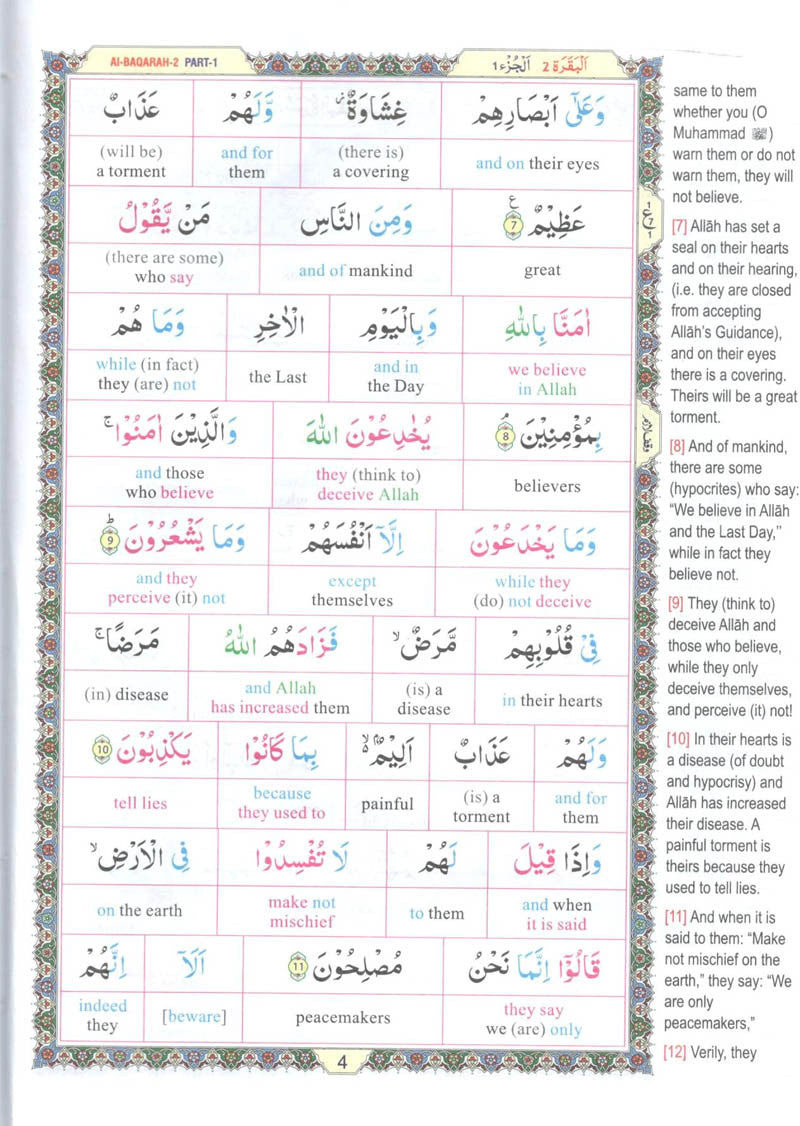 Al-BAQARAH-2 PART-1
اَلْبَقَرَة 2 اَلْجُزْء 1
وَعَلٰٓى اَبْصَارِهِمْ غِشَاوَةٌ وَّلَهُمْ عَذَابٌ
and on their eyes | (there is) a covering | and for them | (will be) a torment
عَظِيْمٌ 7 وَمِنَ النَّاسِ مَنْ يَّقُوْلُ
great | and of mankind | (there are some) who say
اٰمَنَّا بِاللّٰهِ وَبِالْيَوْمِ الْاٰخِرِ وَمَا هُمْ
we believe in Allah | and in the Day | the Last | while (in fact) they (are) not
بِمُؤْمِنِيْنَ 8 يُخٰدِعُوْنَ اللّٰهَ وَالَّذِيْنَ اٰمَنُوْا
believers | they (think to) deceive Allah | and those who believe
وَمَا يَخْدَعُوْنَ اِلَّآ اَنْفُسَهُمْ وَمَا يَشْعُرُوْنَ 9
while they (do) not deceive | except themselves | and they perceive (it) not
فِيْ قُلُوْبِهِمْ مَّرَضٌ فَزَادَهُمُ اللّٰهُ مَرَضًا
in their hearts | (is) a disease | and Allah has increased them | (in) disease
وَلَهُمْ عَذَابٌ اَلِيْمٌ بِمَا كَانُوْا يَكْذِبُوْنَ 10
and for them | (is) a torment | painful | because they used to | tell lies
وَاِذَا قِيْلَ لَهُمْ لَا تُفْسِدُوْا فِى الْاَرْضِ
and when it is said | to them | make not mischief | on the earth
قَالُوْٓا اِنَّمَا نَحْنُ مُصْلِحُوْنَ 11 اَلَآ اِنَّهُمْ
they say we (are) only | peacemakers | [beware] | indeed they
4
same to them
whether you (O
Muhammad ﷺ)
warn them or do not
warn them, they will
not believe.
[7] Allāh has set a
seal on their hearts
and on their hearing,
(i.e. they are closed
from accepting
Allāh's Guidance),
and on their eyes
there is a covering.
Theirs will be a great
torment.
[8] And of mankind,
there are some
(hypocrites) who say:
“We believe in Allāh
and the Last Day,”
while in fact they
believe not.
[9] They (think to)
deceive Allāh and
those who believe,
while they only
deceive themselves,
and perceive (it) not!
[10] In their hearts is
a disease (of doubt
and hypocrisy) and
Allāh has increased
their disease. A
painful torment is
theirs because they
used to tell lies.
[11] And when it is
said to them: “Make
not mischief on the
earth,” they say: “We
are only
peacemakers,”
[12] Verily, they